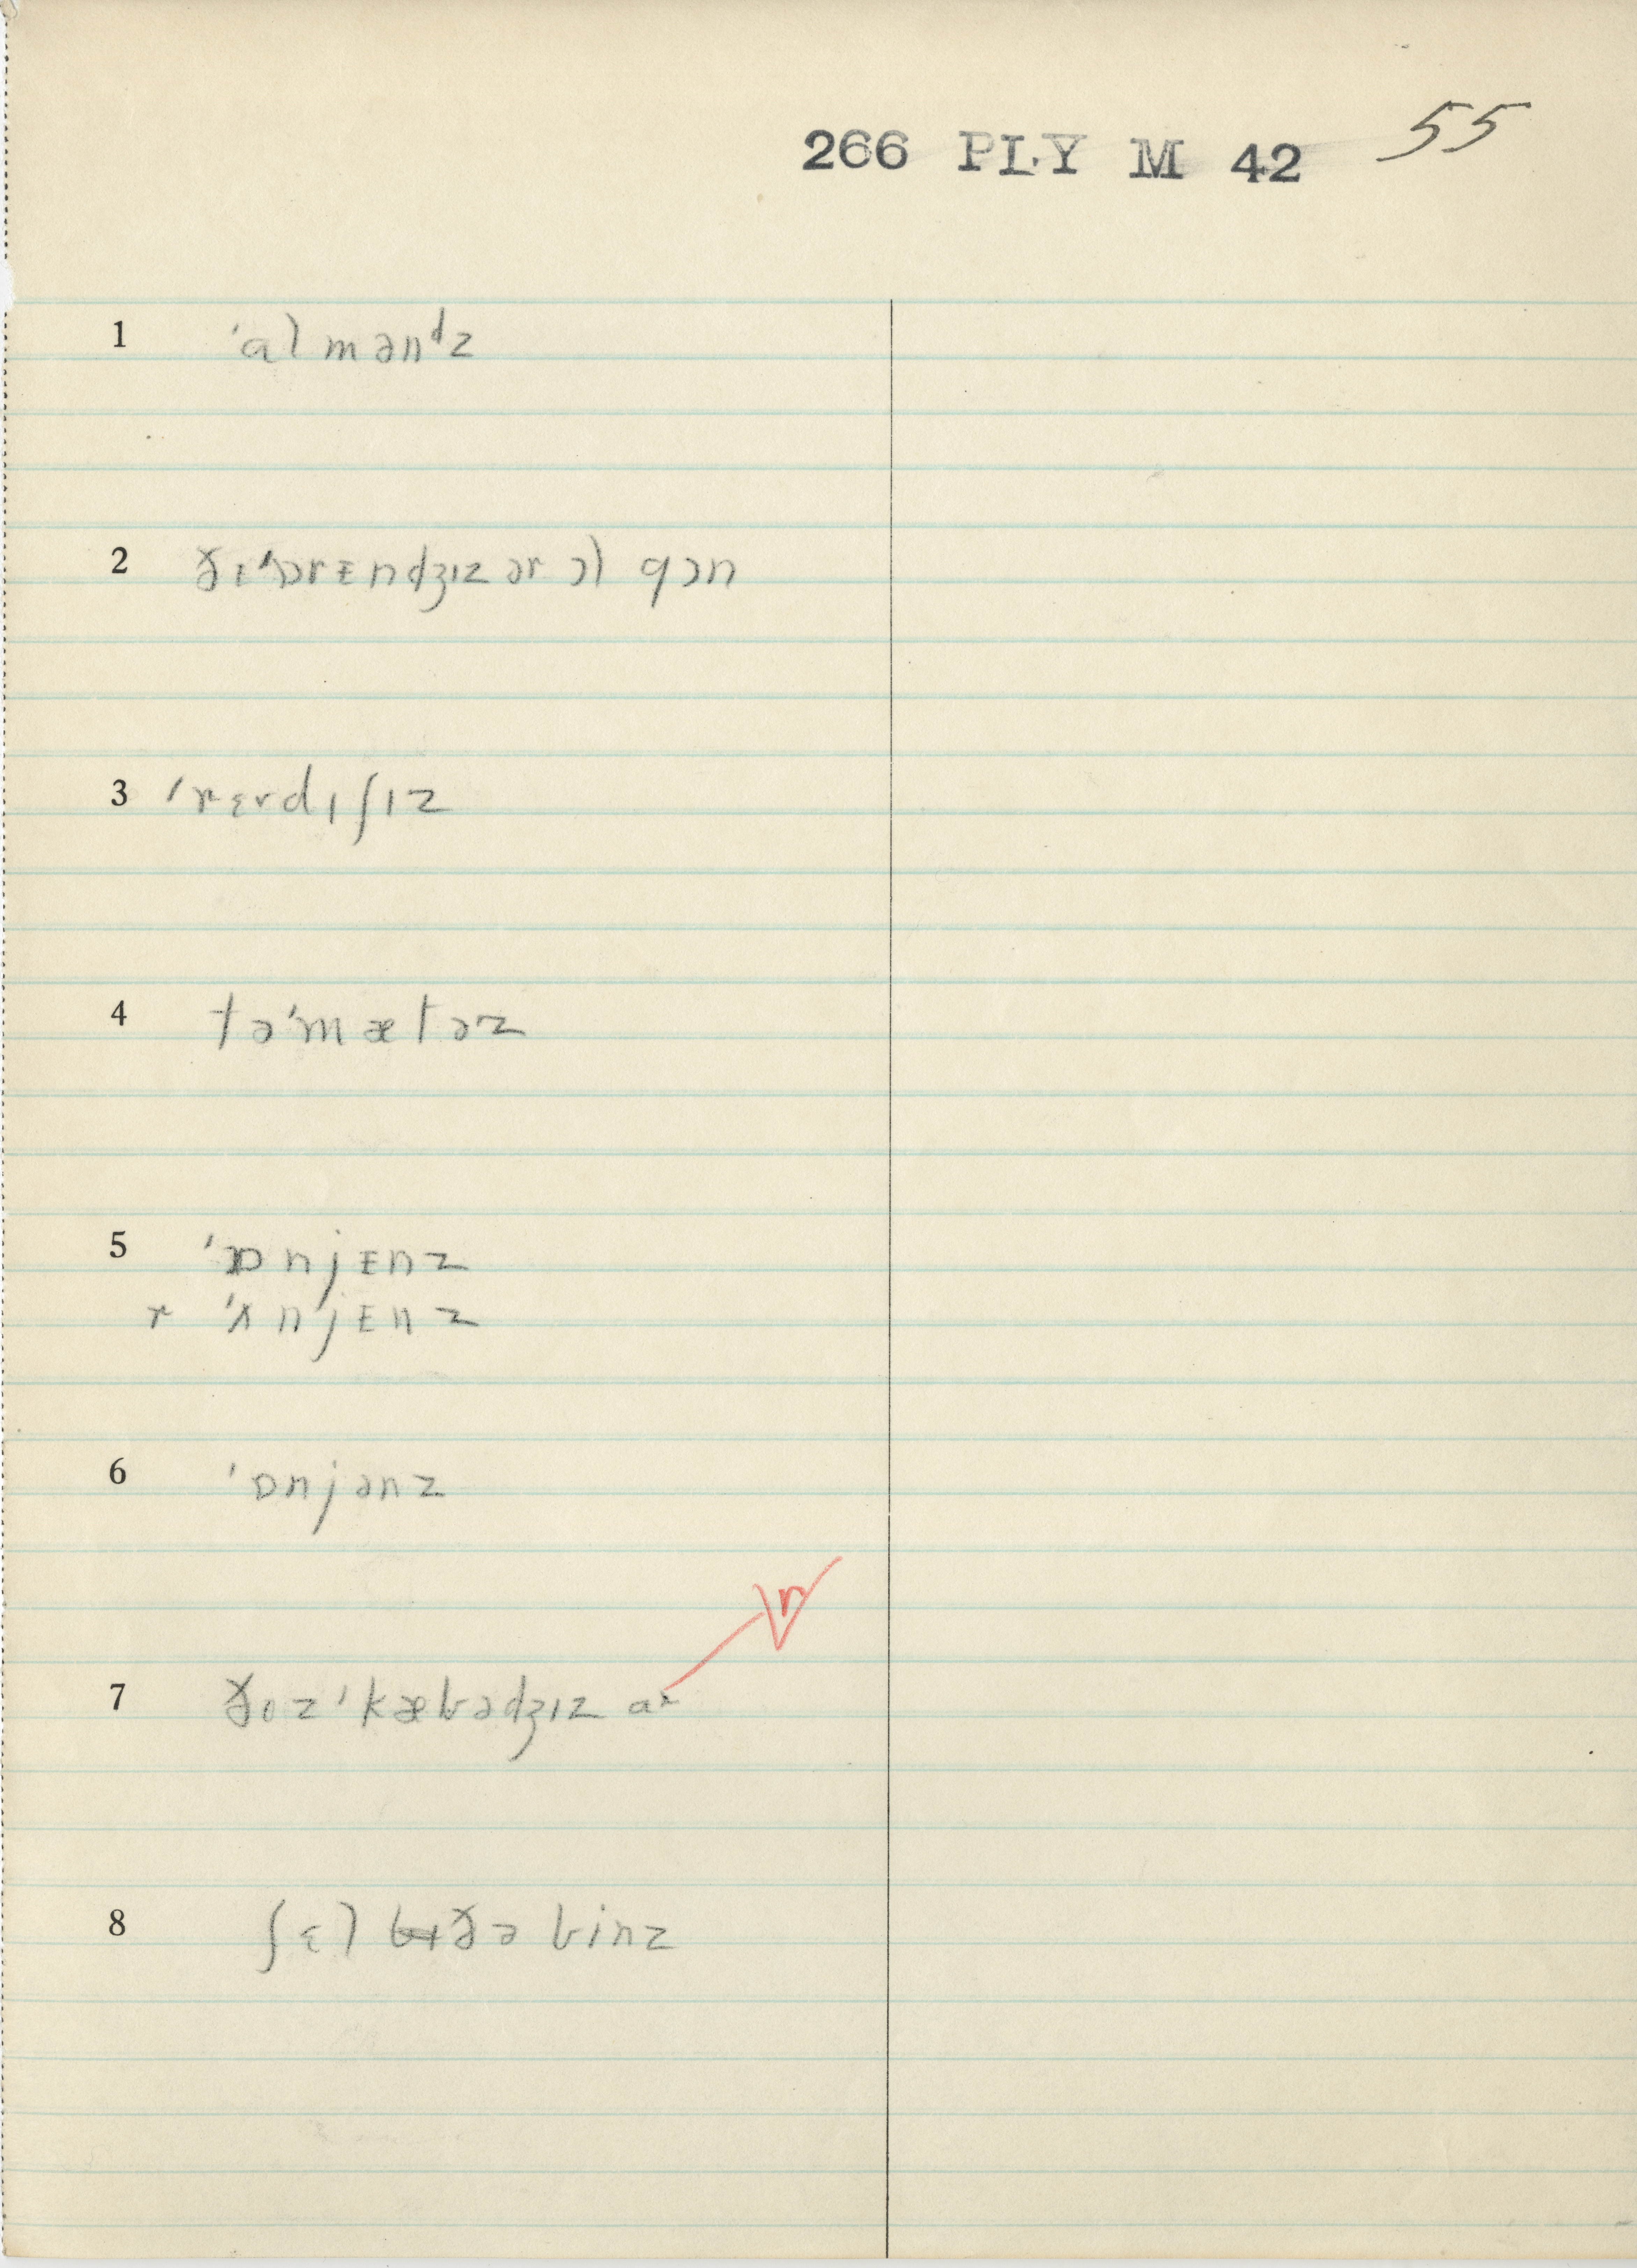 266 PLY M 42 55
1 ˈalmənᵈz
2 ðɪˈɔrᴇndʒɪz ər ɔl gɔn
3 ˈrɛrdɪʃɪz
4 təˈmætəz
5 ˈɒnjᴇnz
r ˈʌnjᴇnz
6 ˈɒnjənz
r
7 ðoz ˈkæbədʒɪz ar
8 ʃɛl ðə binz